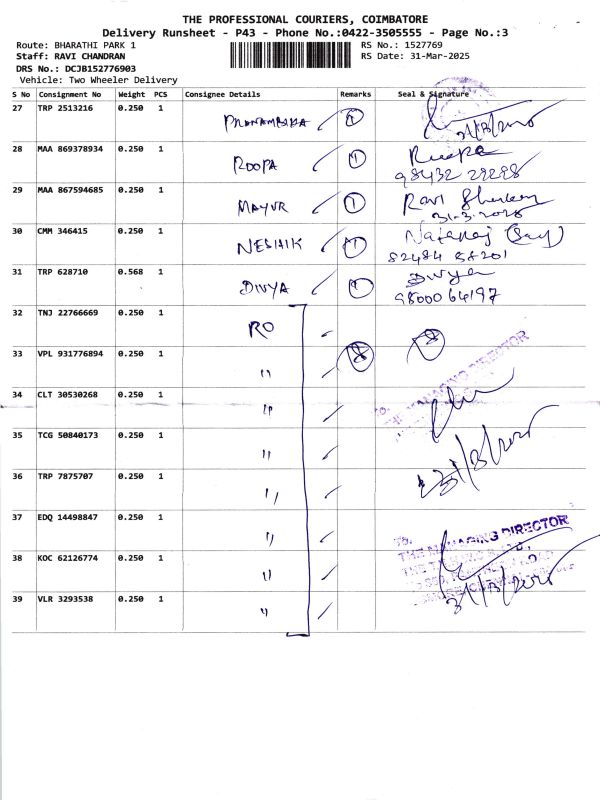 THE PROFESSIONAL COURIERS, COIMBATORE
Delivery Runsheet - P43 - Phone No.:0422-3505555 - Page No.:3
Route: BHARATHI PARK 1
RS No.: 1527769
Staff: RAVI CHANDRAN
RS Date: 31-Mar-2025
DRS No.: DCJB152776903
Vehicle: Two Wheeler Delivery
S No Consignment No Weight PCS Consignee Details Remarks Seal & Signature
27 TRP 2513216 0.250 1 1
31/3/2025
28 MAA 869378934 0.250 1 ROOPA 1 Roopa
98432 29298
29 MAA 867594685 0.250 1 MAYUR 1 Ravi
31-3-2025
30 CMM 346415 0.250 1 1 Nataraj
31 TRP 628710 0.568 1 DIVYA 1 Divya
9800064197
32 TNJ 22766669 0.250 1 RO 8
33 VPL 931776894 0.250 1 " 8
TO.
THE MANAGING DIRECTOR
34 CLT 30530268 0.250 1 "
35 TCG 50840173 0.250 1 "
31/3/2025
36 TRP 7875707 0.250 1 "
37 EDQ 14498847 0.250 1 "
TO.
THE MANAGING DIRECTOR
38 KOC 62126774 0.250 1 "
39 VLR 3293538 0.250 1 "
31/3/2025